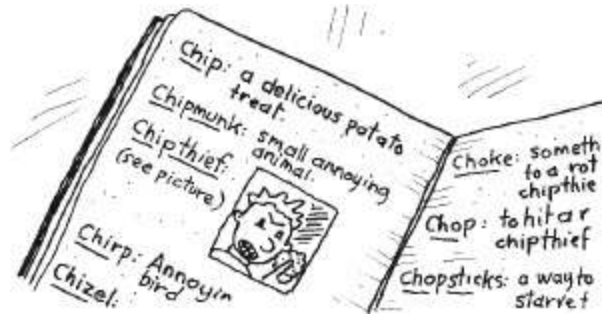 Chip: a delicious potato
treat.
Chipmunk: small annoying
animal.
Chipthief:
(see picture)
Chirp: Annoyin
bird
Chizel:
Choke: someth
to a rot
chipthie
Chop: to hit a r
chipthief
Chopsticks: a way to
starve t